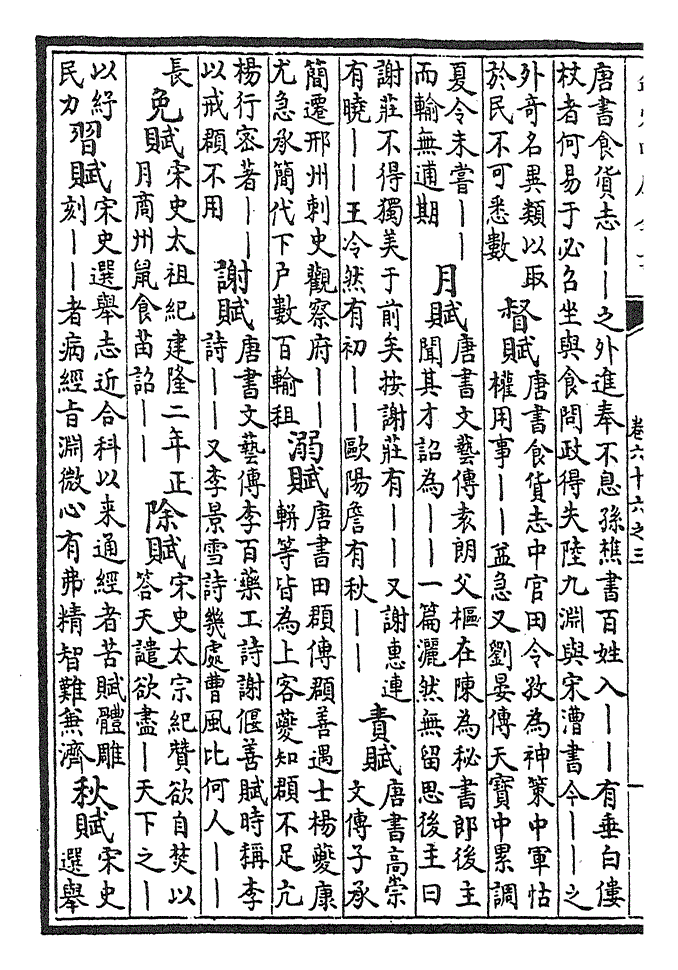 卷六十六之三
唐書食貨志｜｜之外進奉不息孫樵書百姓入｜｜｜有垂白僂
杖者何易于必召坐與食問政得失陸九淵與宋漕書今｜｜｜之
外奇名異類以取
於民不可悉數
督賦
唐書食貨志中官田令孜為神策中軍怙
權用事｜｜益急又劉晏傳天寶中累調
夏令未嘗｜｜
而輸無逋期
月賦
唐書文藝傳袁朗父樞在陳為秘書郎後主
聞其才詔為｜｜一篇灑然無留思後主曰
謝莊不得獨美于前矣按謝莊有｜｜又謝惠連
有曉｜｜王冷然有初｜｜歐陽詹有秋｜｜
責賦
唐書高崇
文傳子承
簡遷邢州刺史觀察府｜｜
尤急承簡代下戶數百輸租
溺賦
唐書田頵傳頵善遇士楊夔康
軿等皆為上客夔知頵不足亢
楊行密著｜｜
以戒頵不用
謝賦
唐書文藝傳李百藥工詩謝偃善賦時稱李
詩｜｜又李景雪詩幾處曹風比何人｜｜
長
免賦
宋史太祖紀建隆二年正
月商州鼠食苗詔｜｜
除賦
宋史太宗紀贊欲自焚以
答天譴欲盡｜天下之｜
以紓
民力
習賦
宋史選舉志近合科以来通經者苦賦體雕
刻｜｜者病經旨淵微心有弗精智難兼濟
秋賦
宋史
選舉